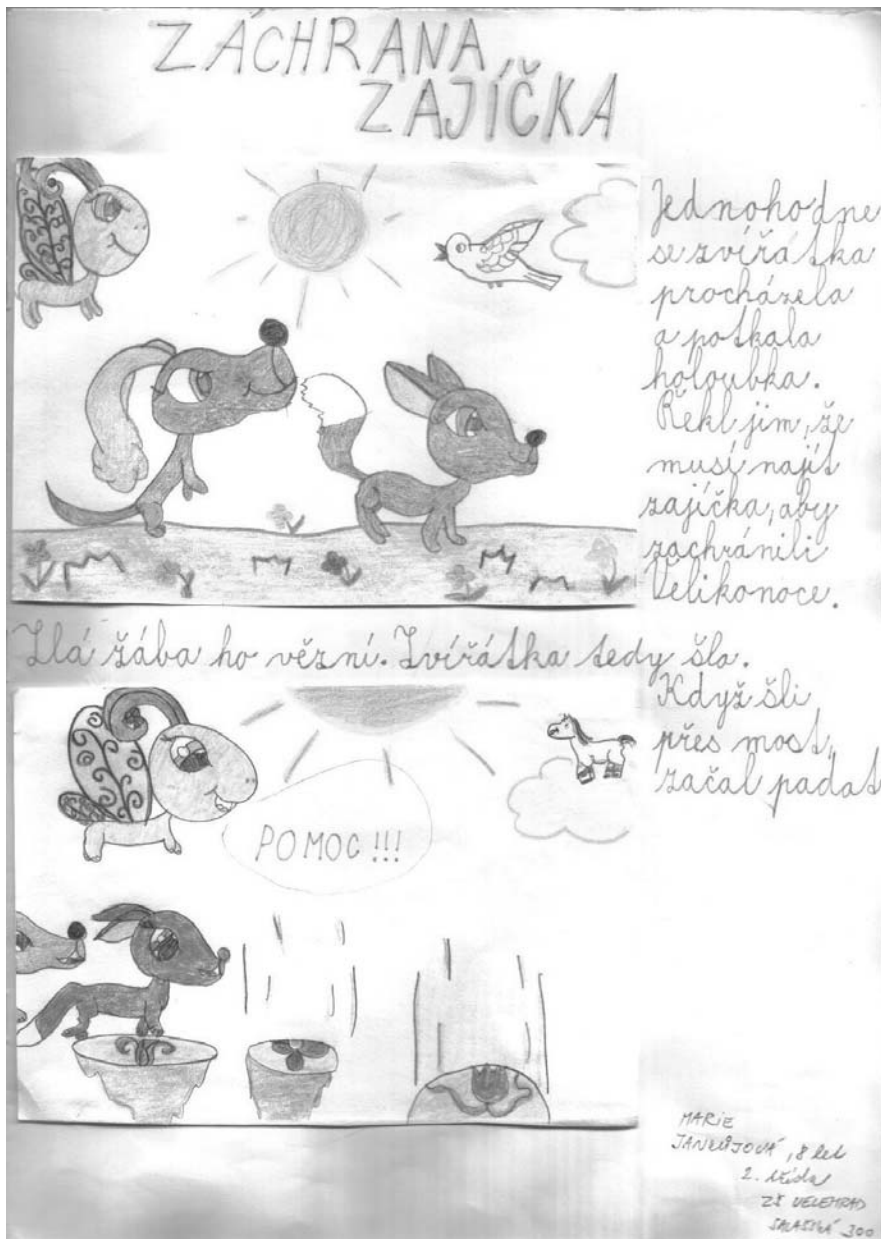 ZÁCHRANA
ZAJÍČKA
Jednohodne
se zvířátka
procházela
a potkala
holoubka.
Řekl jim, že
musí najít
zajíčka, aby
zachránili
Velikonoce.
Zlá žába ho vězní. Zvířátka tedy šla.
Když šli
přes most,
začal padat
POMOC!!!
MARIE
, 8 let
2. třída
ZŠ VELEHRAD
SALAŠSKÁ 300